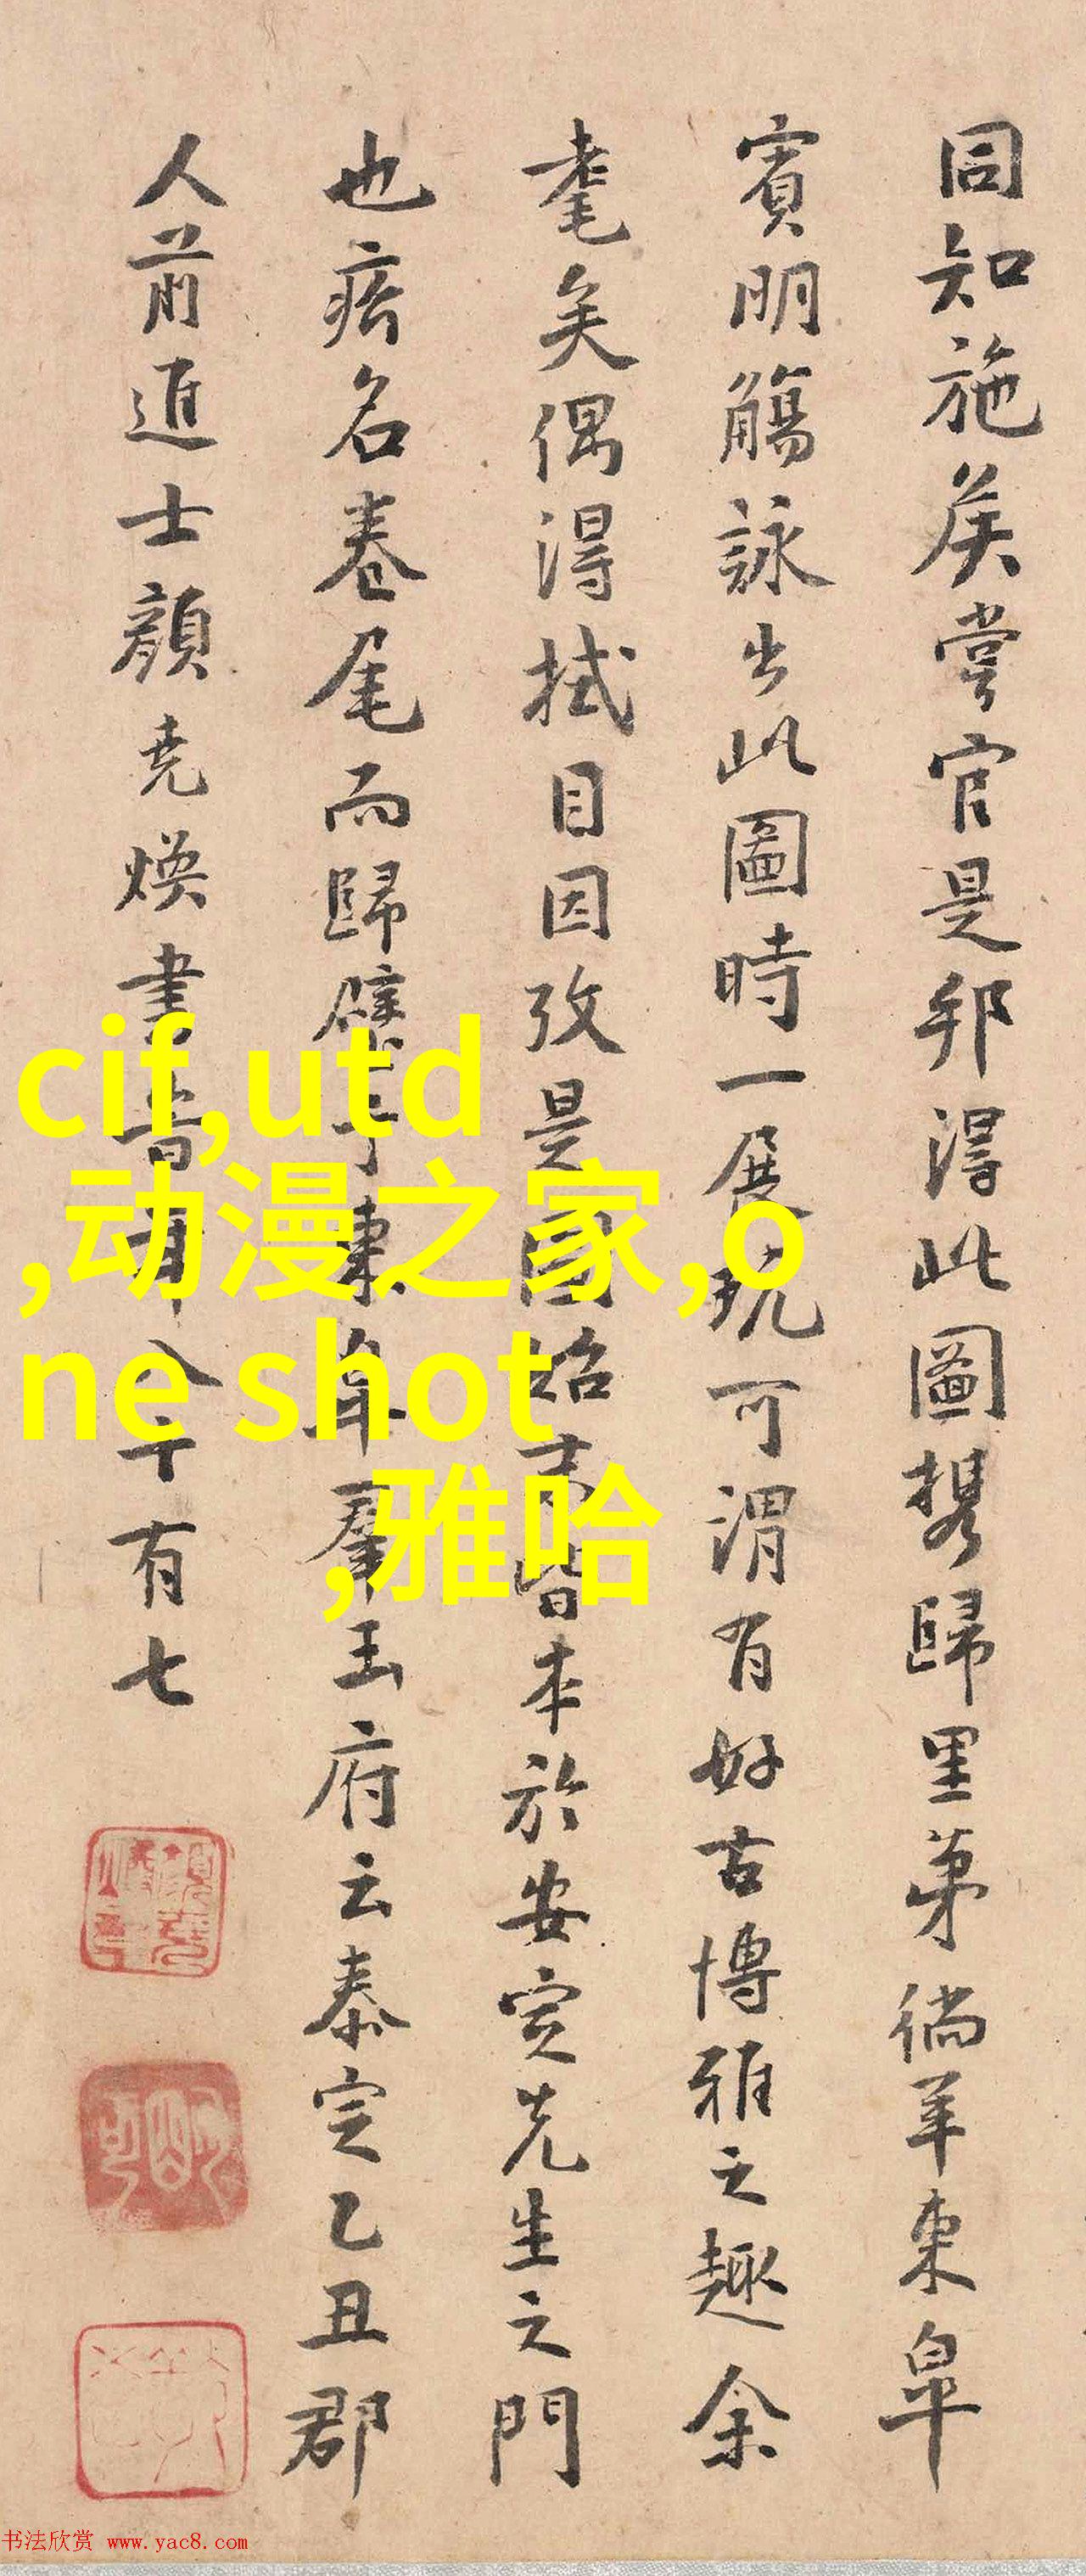 同知施侯嘗官是邦得此圖携歸里第徜羊東皐
賓朋觴詠出此圖時一展玩可謂有好古博雅之趣余
耄矣偶得拭目因攷是圖始末皆本於安定先生之門
也痦名卷尾而歸璧于東皐羣玉府云泰定乙丑郡
人前進士顔堯煥書時年八十有七
cif,utd
,动漫之家,o
ne shot
,雅哈
书法欣赏 www.yac8.com